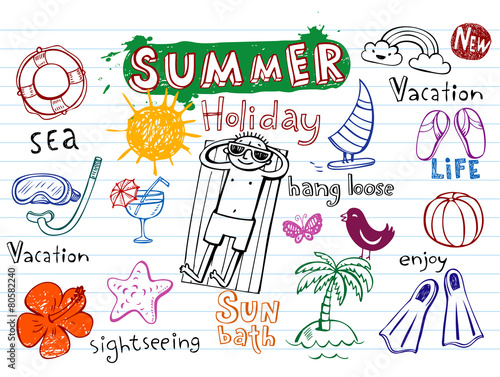 SUMMER
NEW
Holiday
Vacation
sea
hang loose
LiFE
Vacation
enjoy
SUN
bath
sightseeing
Adobe Stock
80582240